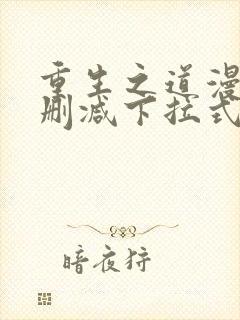 重生之道漫
删减下拉式
暗夜狩